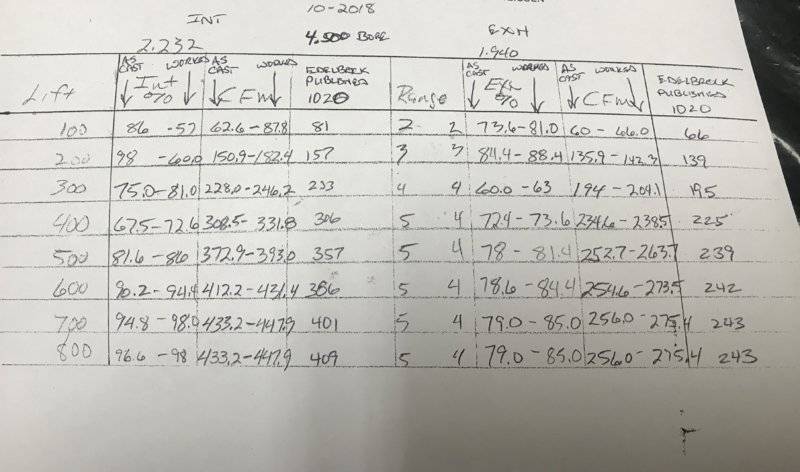 10-2018
INT
4.500 BORE
EXH
2.232
1.940
Lift AS CAST WORKED Int % AS CAST WORKED CFM EDELBROCK PUBLISHED 1020 Range AS CAST WORKED Exh % AS CAST WORKED CFM EDELBROCK PUBLISHED 1020
100 86 -57 62.6-87.8 81 2 2 73.6-81.0 60-66.0 66
200 98 -60.0 150.9-182.4 157 3 3 84.4-88.4 135.9-142.3 139
300 75.0-81.0 228.0-246.2 233 4 4 60.0-63 194-204.1 195
400 67.5-72.6 308.5-331.8 306 5 4 72.4-73.6 234.6-238.5 225
500 81.6-86 372.9-393.0 357 5 4 78-81.4 252.7-263.7 239
600 90.2-94.4 412.2-431.4 386 5 4 78.6-84.4 254.6-273.5 242
700 94.8-98.0 433.2-447.9 401 5 4 79.0-85.0 256.0-275.4 243
800 96.6-98 433.2-447.9 409 5 4 79.0-85.0 256.0-275.4 243